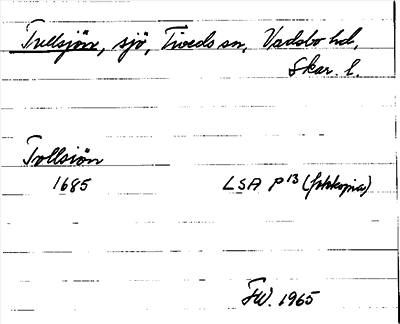 Trellsjön, sjö, Tiveds sn, Vadsbo hd,
Skar. l.
Trollsiön
1685 LSA P13 (fotokopia)
FW. 1965